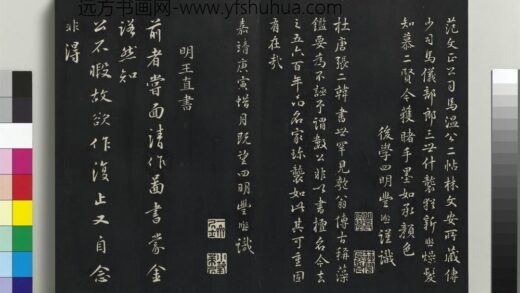 远方书画网-www.yfshuhua.com
范文正公司馬溫公二帖林文安所藏傳
少司馬儀部郎三世什襲新熙燥髮
知慕二賢今獲睹手墨如承顏色
後學四明豐熙謹識
杜唐張二韓書世罕見翁傳古稱藻
鑑要為不誣子謂數公非以書擅名今去
之五六百年而名家珍襲如此其可重固
有在哉
嘉靖庚寅蜡月既望四明豐熙識
明王直書
前者嘗面請作圖書蒙金
諾然知
公不暇故欲作復止又自念
非得